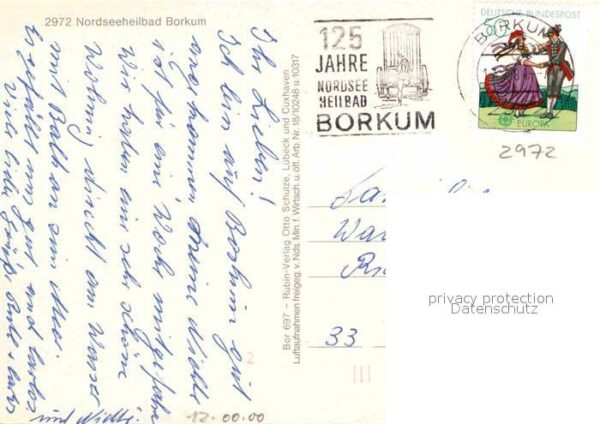 2972 Nordseeheilbad Borkum
Ihr Lieben!
Ich bin auf Borkum gut
angekommen. Meine Nichte
ist für eine Woche mitgefahren
Wir haben eine sehr schöne
Wohnung direkt am Wasser
mit Balkon zum Meer.
gefällt uns gut
Viele liebe Grüße
und
12.00.00
Bor 697 – Rubin-Verlag Otto Schulze, Lübeck und Cuxhaven
Luftaufnahmen freigeg. v. Nds. Min. f. Wirtsch. u. öff. Arb. Nr. 18/10248 u. 10317
125
JAHRE
NORDSEE
HEILBAD
BORKUM
DEUTSCHE BUNDESPOST
50
EUROPA
BORKUM
2972
33
privacy protection
Datenschutz
2